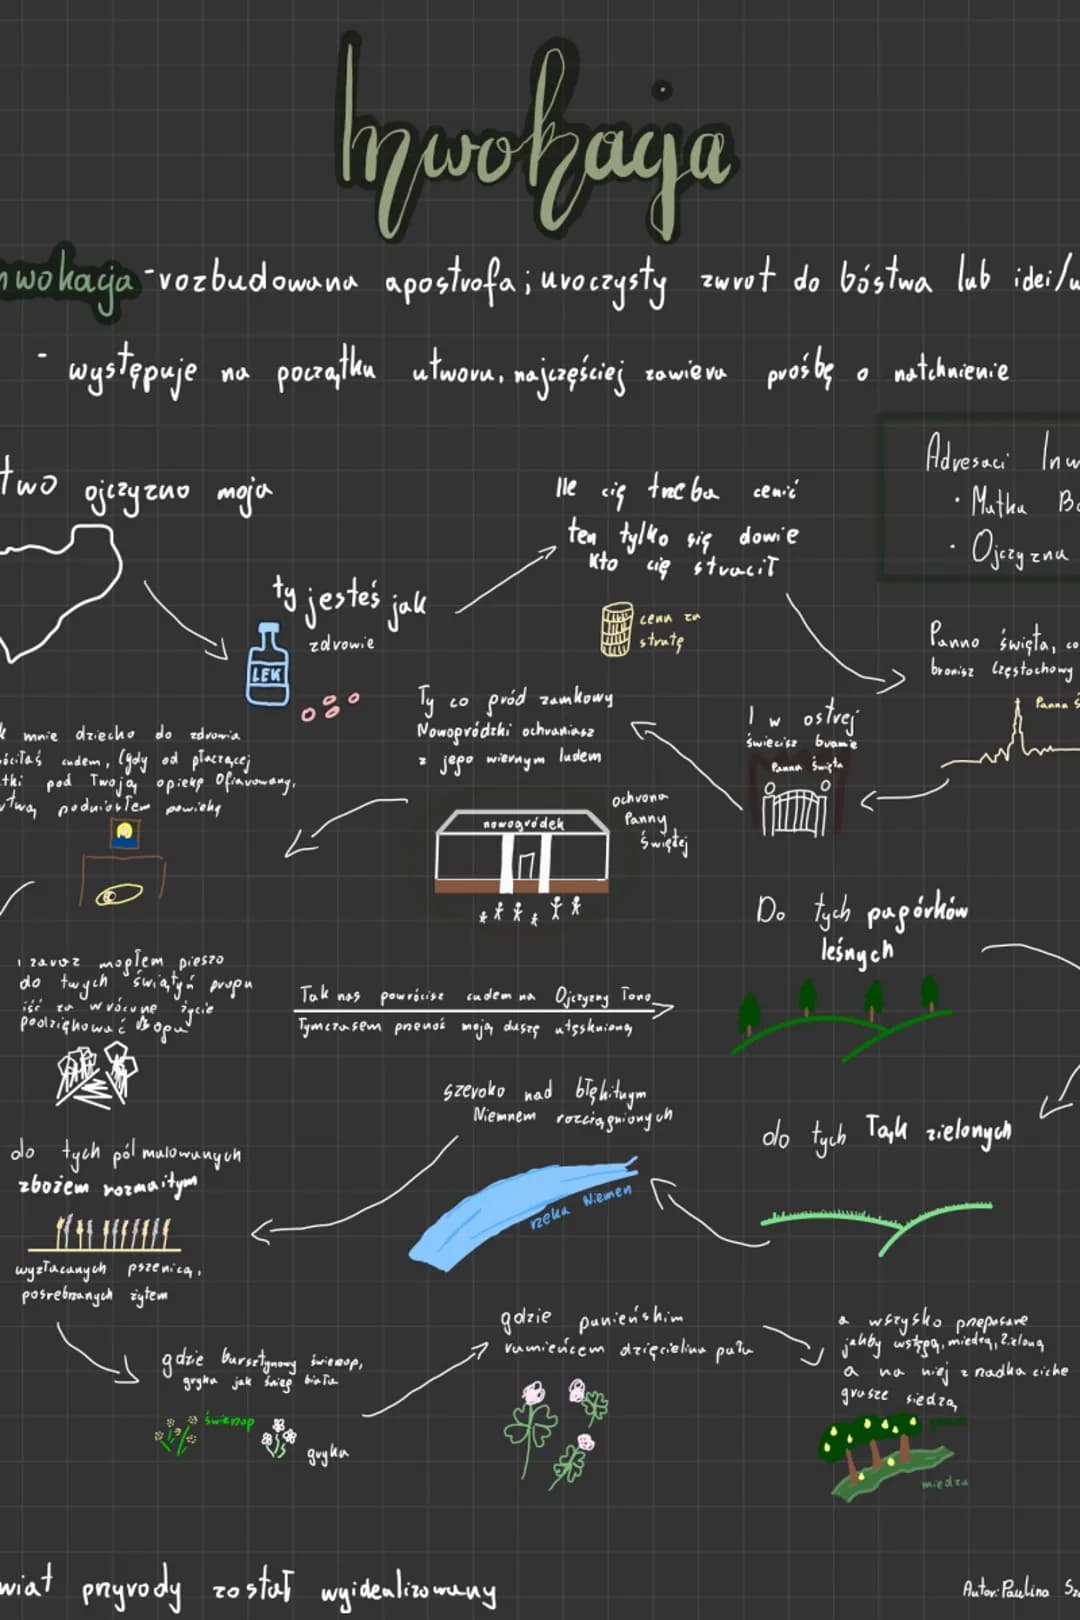 Inwokacja
nwokacja - rozbudowana apostrofa; uroczysty zwrot do bóstwa lub idei/w
- występuje na początku utworu, najczęściej zawiera prośbę o natchnienie
two ojczyzno moja
Ile cię trzeba cenić
ten tylko się dowie
kto cię stracił
Adresaci Inw
• Matka Bo
• Ojczyzna
ty jesteś jak
zdrowie
LEK
cena za
stratę
Panno święta, co
bronisz Częstochowy
Panna Ś
I w ostrej
świecisz bramie
Panna Święta
Ty co gród zamkowy
Nowogródzki ochraniasz
z jego wiernym ludem
nowogródek
ochrona
Panny
Świętej
k mnie dziecko do zdrowia
óciłaś cudem, (gdy od płaczącej
tki pod Twoją opiekę Ofiarowany,
rtwą podniosłem powiekę
i zaraz mogłem pieszo
do twych świątyń progu
iść za wrócone życie
podziękować Bogu
Tak nas powrócisz cudem na Ojczyzny łono
Tymczasem przenoś moją duszę utęsknioną
Do tych pagórków
leśnych
do tych łąk zielonych
szeroko nad błękitnym
Niemnem rozciągnionych
rzeka Niemen
do tych pól malowanych
zbożem rozmaitym
wyzłacanych pszenicą,
posrebrzanych żytem
gdzie bursztynowy świerzop,
gryka jak śnieg biała
świerzop
gryka
gdzie panieńskim
rumieńcem dzięcielina pała
a wszysko przepasane
jakby wstęgą, miedzą, Zieloną
a na niej z rzadka ciche
grusze siedzą
miedza
wiat przyrody został wyidealizowany
Autor: Paulina